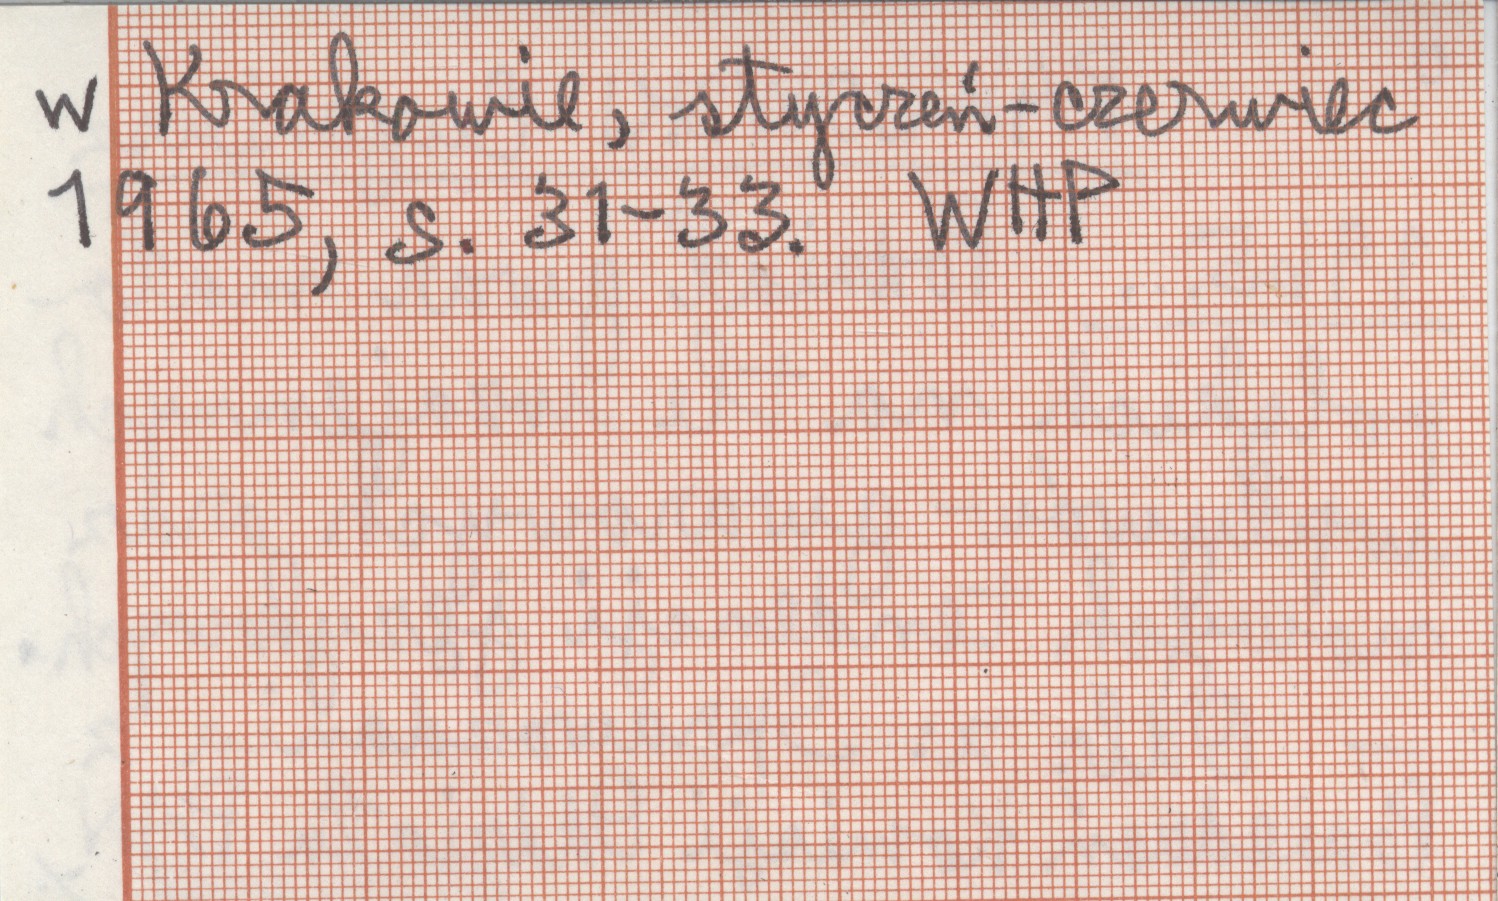 w Krakowie, styczeń-czerwiec
1965, s. 31-33. WHP